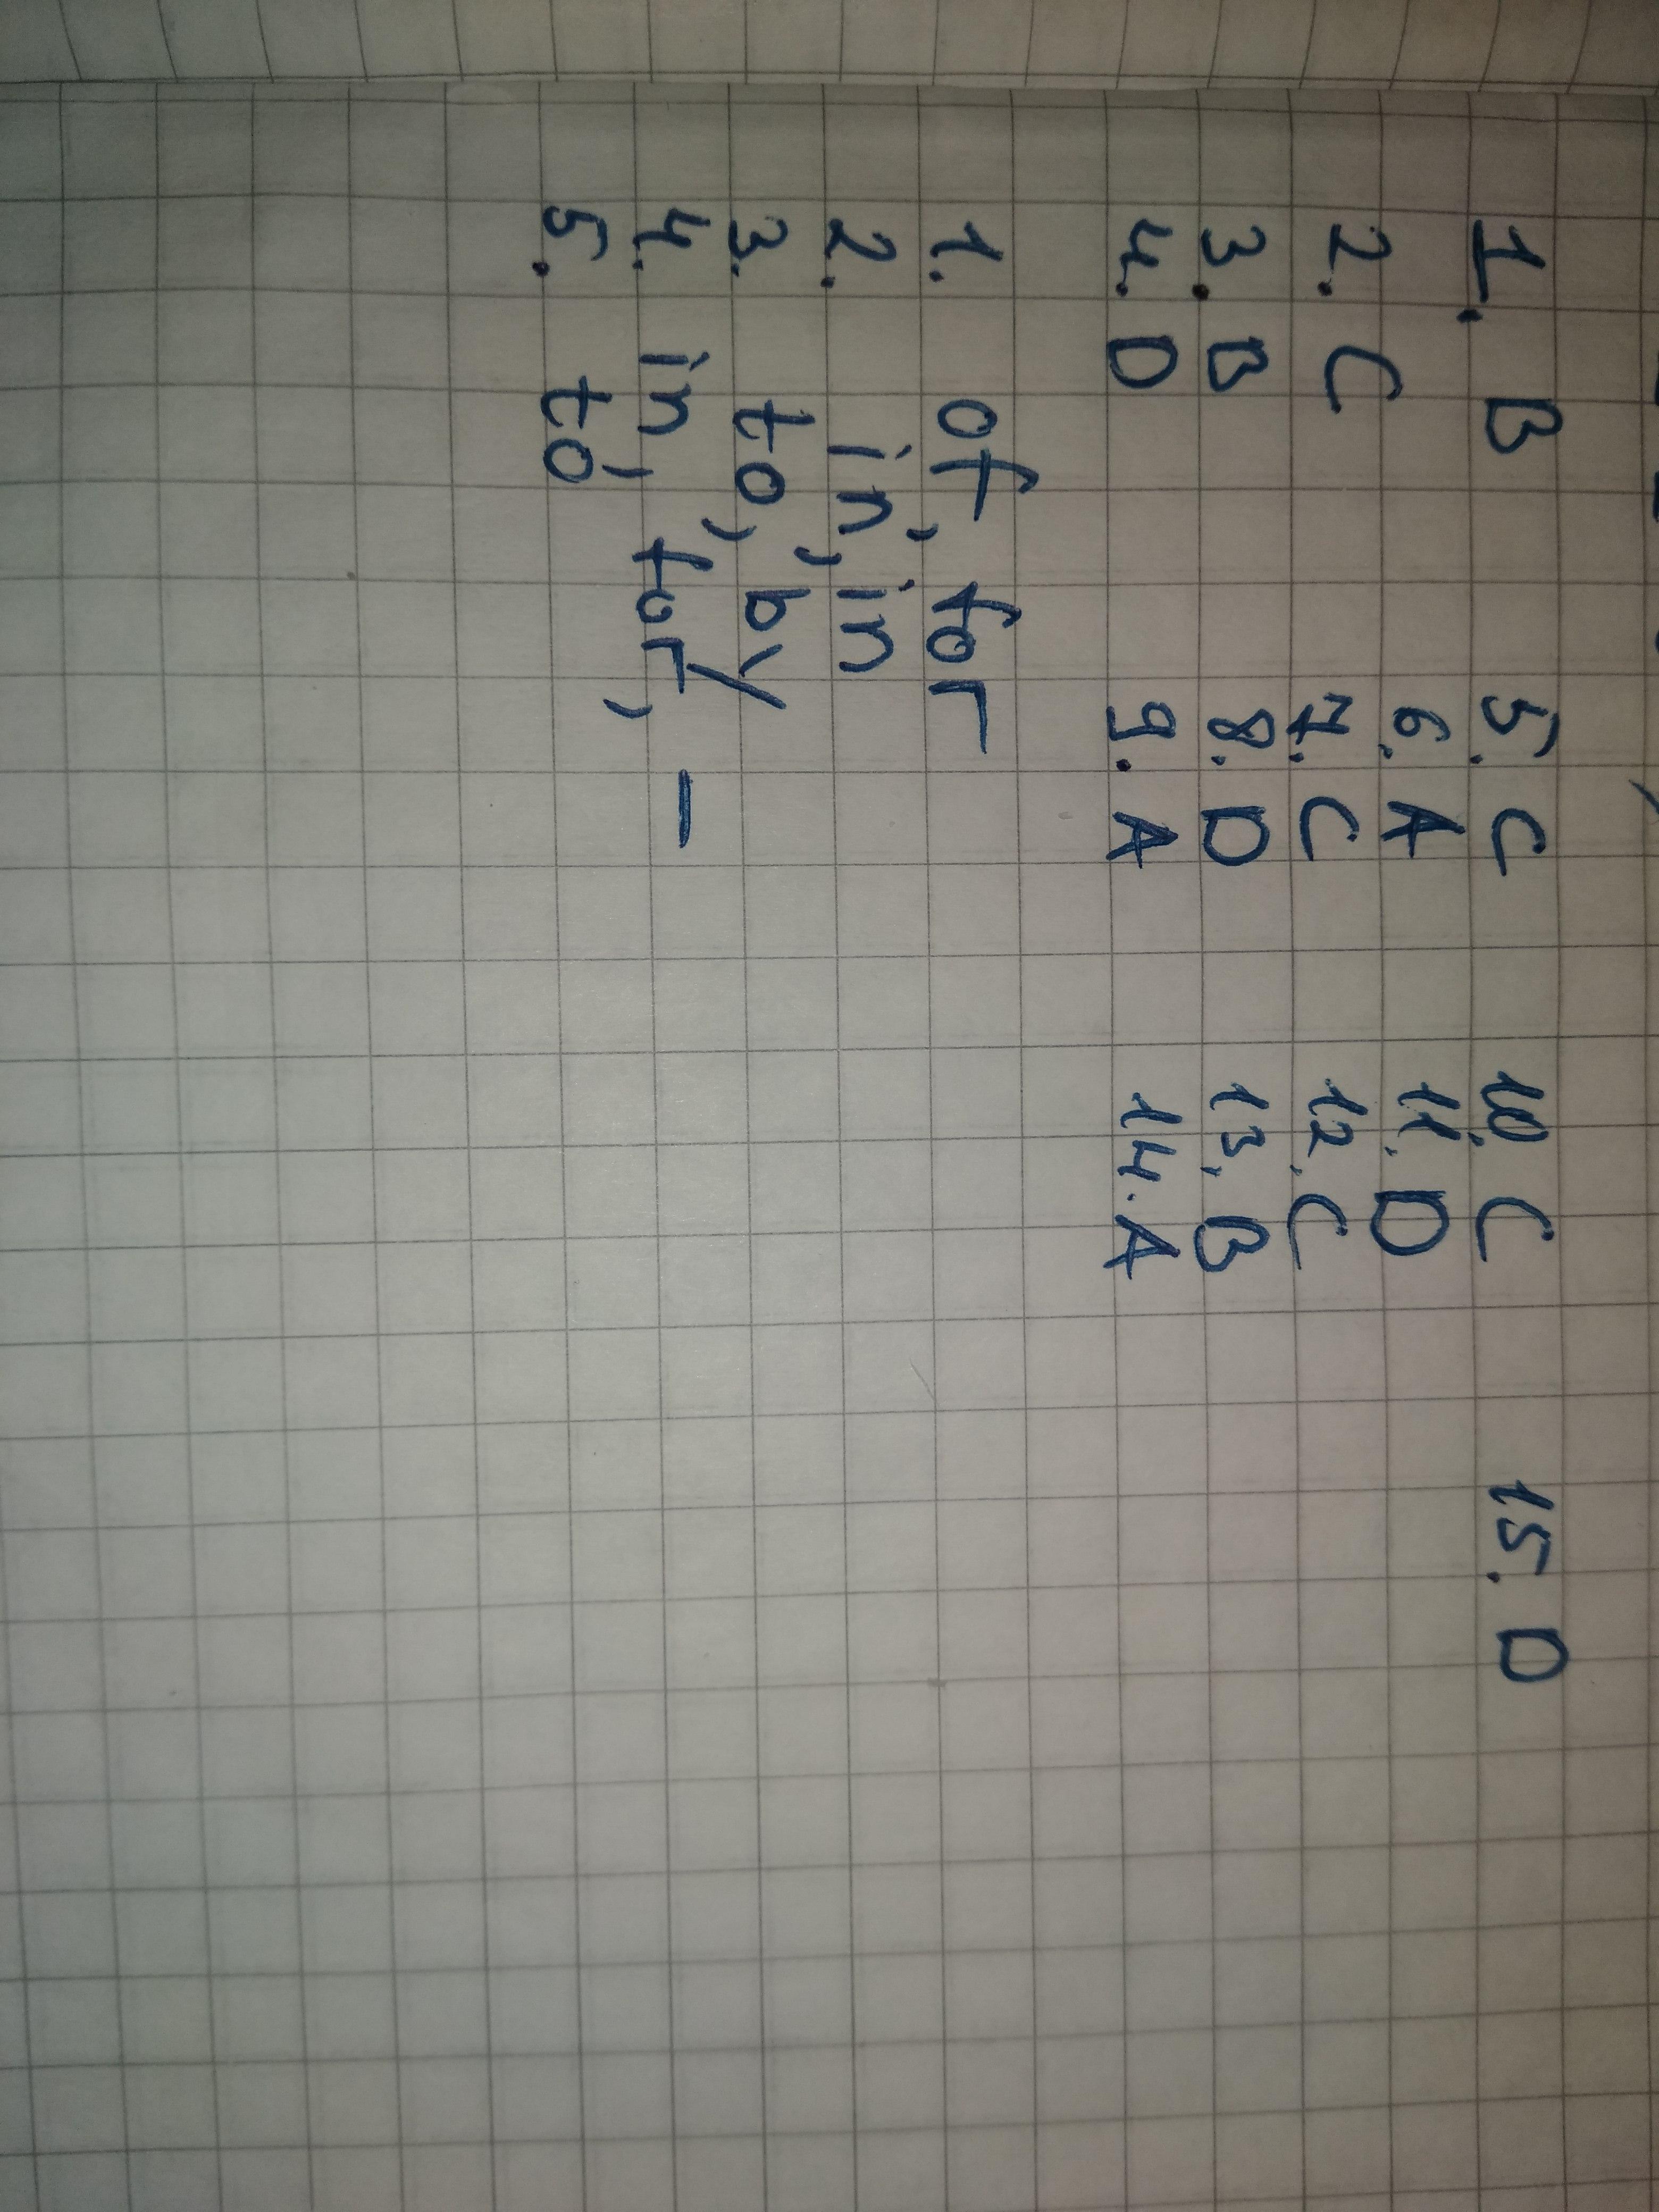 1. B 5. C 10. C 15. D
2. C 6. A 11. D
3. B 7. C 12. C
4. D 8. D 13. B
9. A 14. A
1. of, for
2. in, in
3. to, by
4. in, for, —
5. to